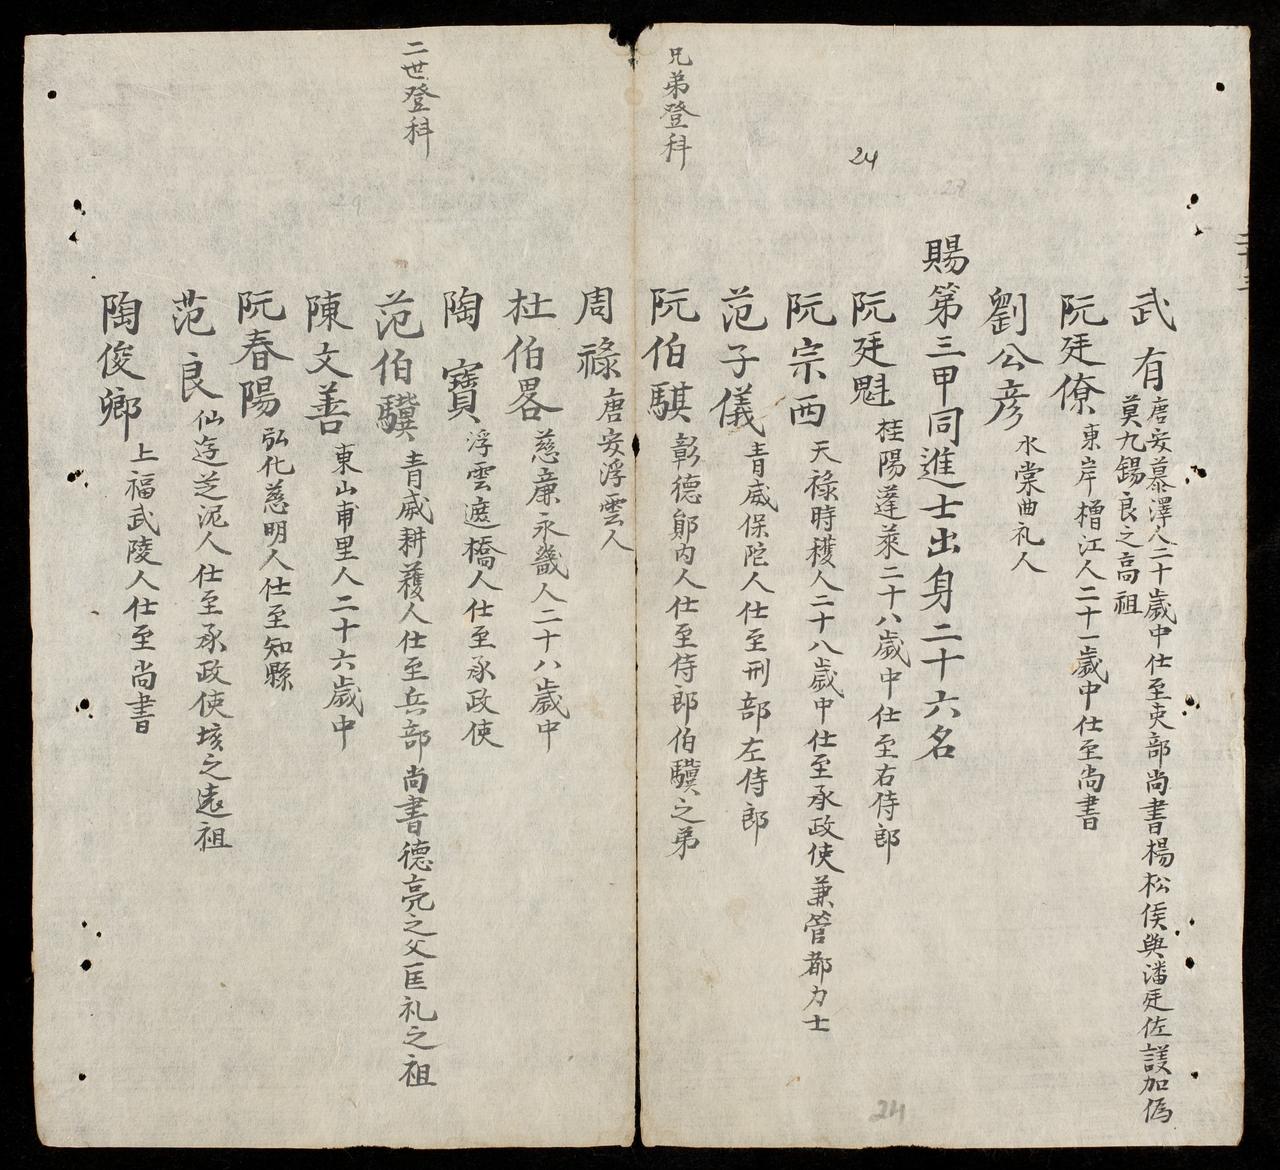 武有 唐安慕澤人二十歲中仕至吏部尚書楊松侯與潘廷佐謀加偽
莫九錫良之高祖
阮廷僚 東岸橧江人二十一歲中仕至尚書
劉公彥 水棠曲礼人
賜第三甲同進士出身二十六名
24
27
阮廷魁 桂陽蓬萊二十八歲中仕至右侍郎
24
阮宗西 天祿時穫人二十八歲中仕至承政使兼管都力士
范子儀 青威保陀人仕至刑部左侍郎
兄弟登科
阮伯騏 彰德鄖内人仕至侍郎伯驥之弟
周祿 唐安浮雲人
杜伯畧 慈廉永畿人二十八歲中
陶寶 浮雲遮橋人仕至承政使
二世登科
范伯驥 青威耕穫人仕至兵部尚書德亮之父匡礼之祖
29
陳文善 東山甫里人二十六歲中
阮春陽 弘化慈明人仕至知縣
范良 仙迄芝泥人仕至承政使垓之遠祖
陶俊卿 上福武陵人仕至尚書